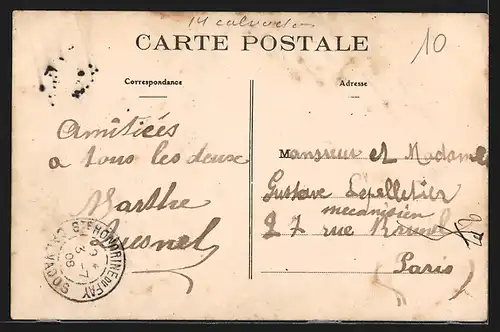 14 calvados
CARTE POSTALE
10
Correspondance
Adresse
Amitiées
a tous les deux
Marthe
Quesnel
Monsieur et Madame
Gustave Lepelletier
mecanicien
27 rue Brunel
Paris
STE HONORINE DU FAY
3 -7
08
CALVADOS